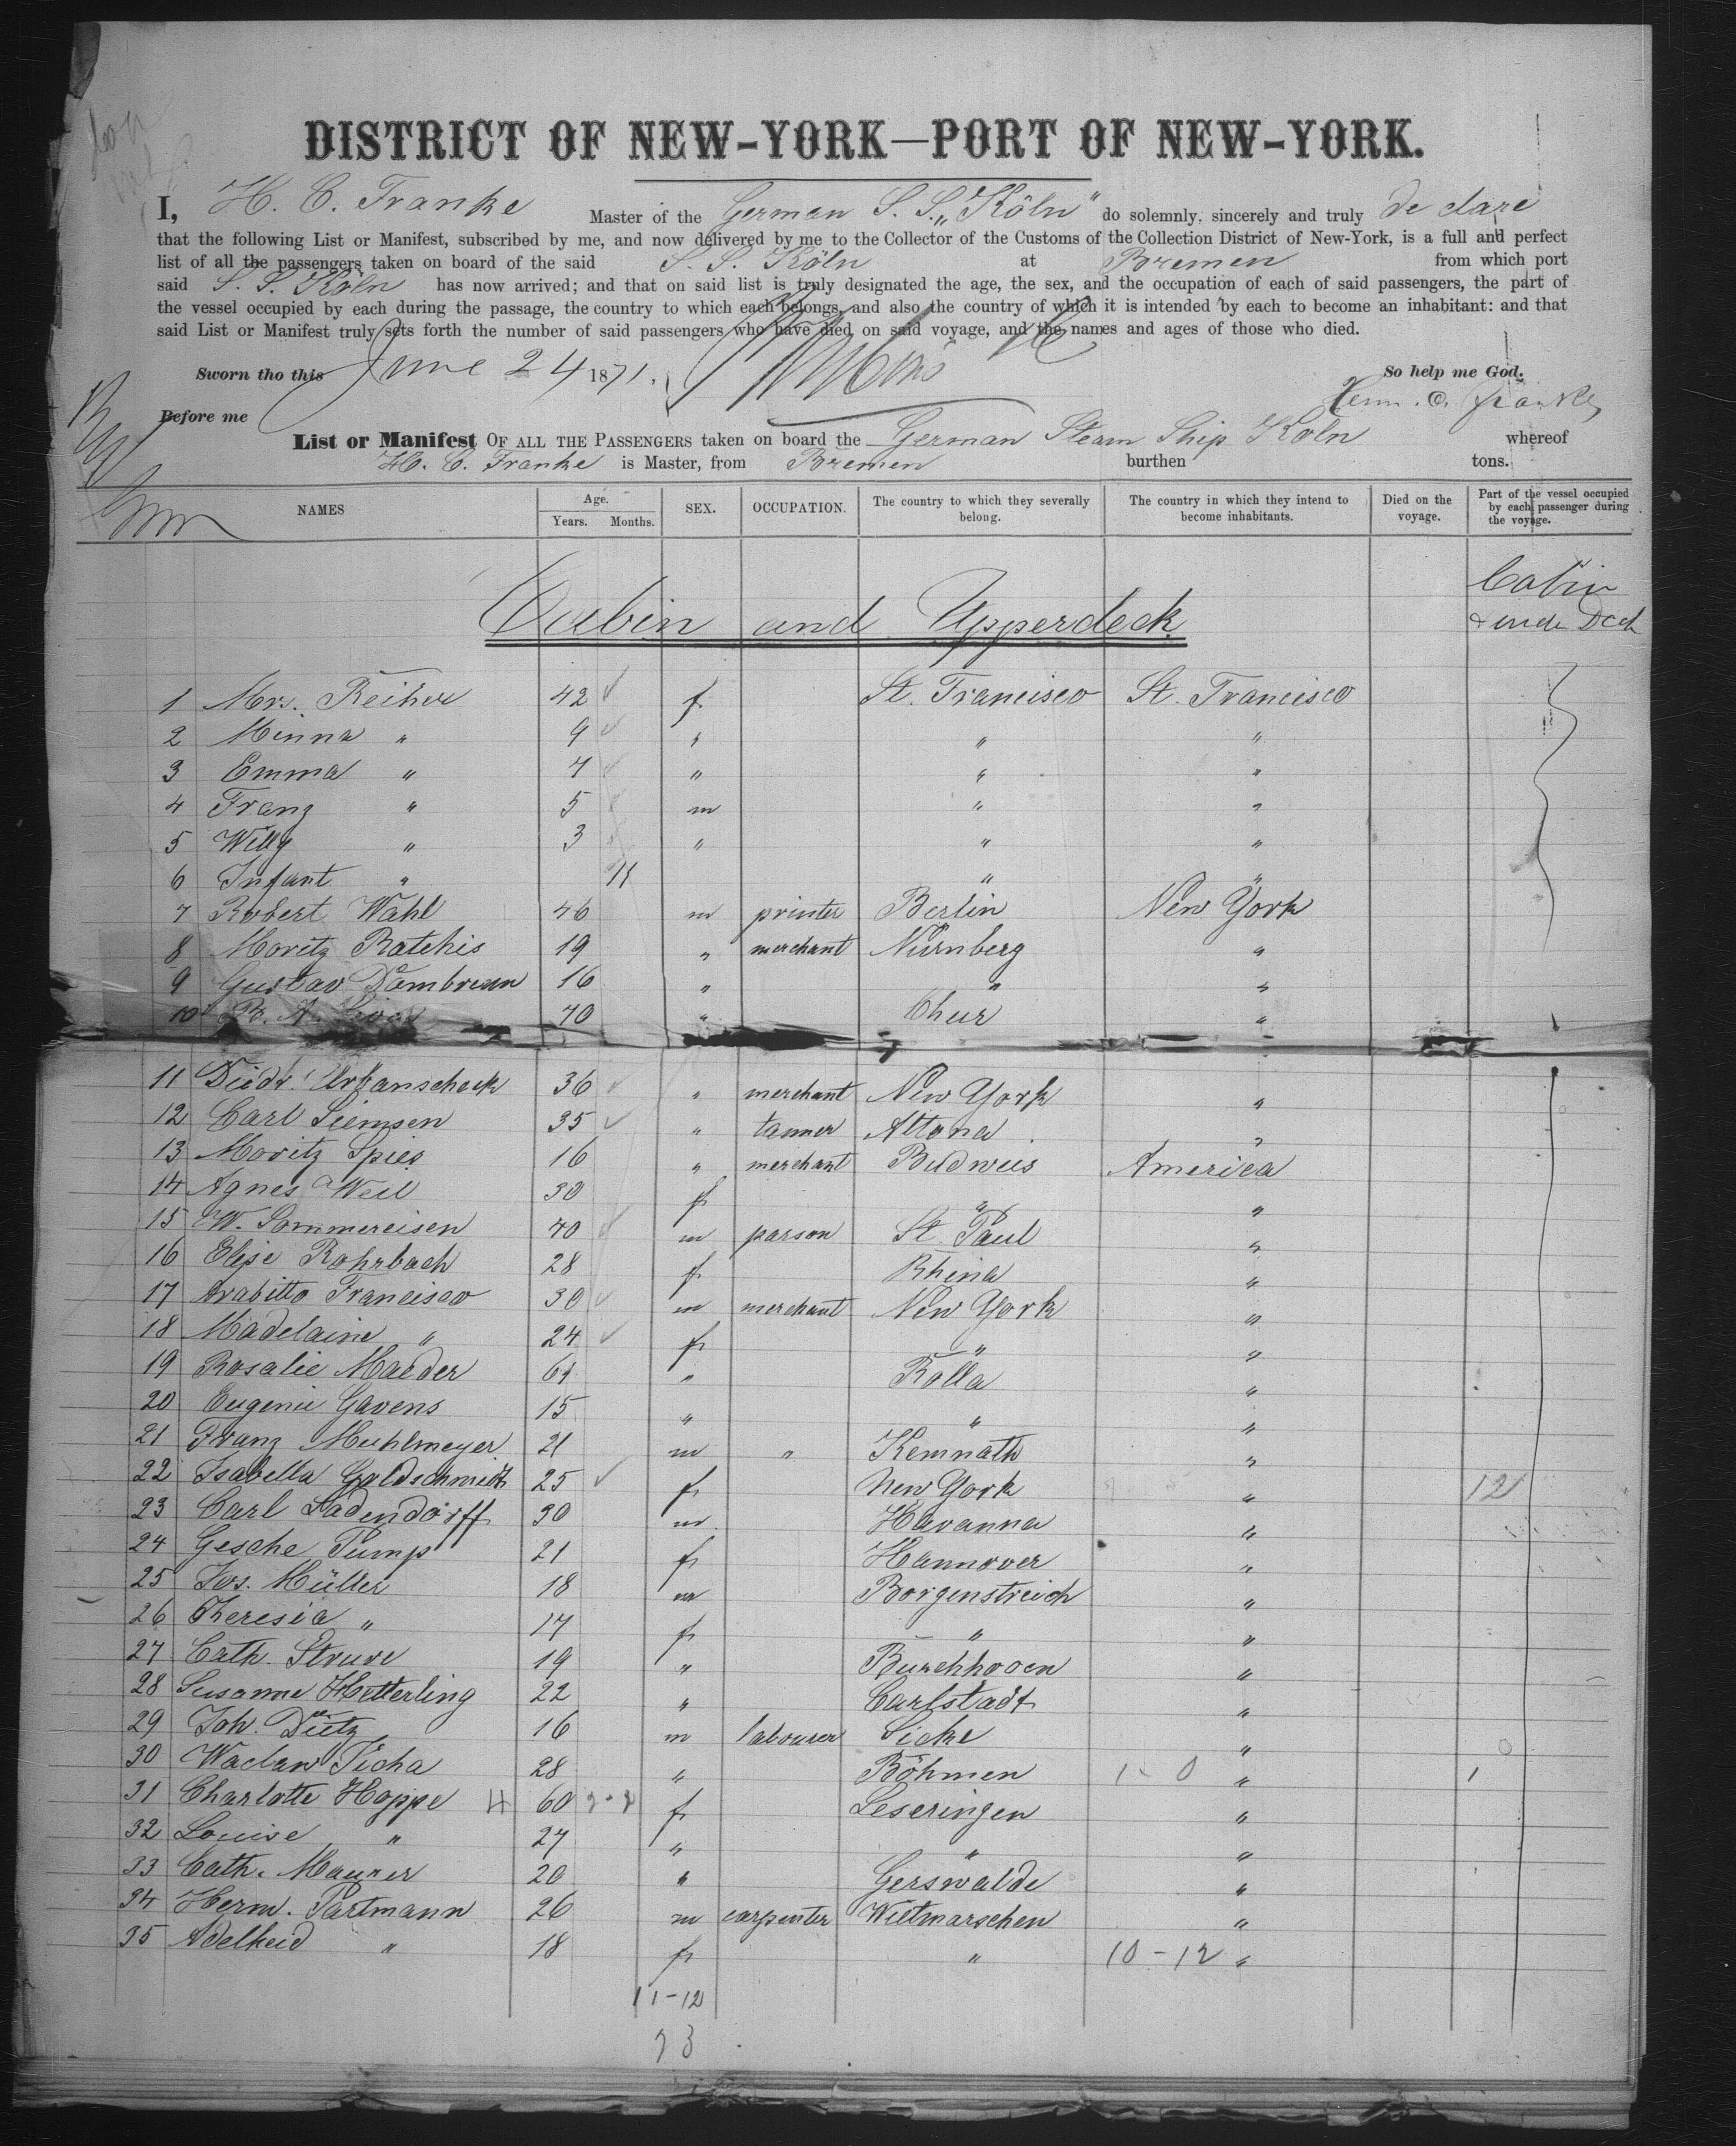 DISTRICT OF NEW-YORK—PORT OF NEW-YORK.
I, H. C. Franke Master of the German S. S. „Köln" do solemnly, sincerely and truly declare
that the following List or Manifest, subscribed by me, and now delivered by me to the Collector of the Customs of the Collection District of New-York, is a full and perfect
list of all the passengers taken on board of the said S. S. Köln at Bremen from which port
said S. S. Köln has now arrived; and that on said list is truly designated the age, the sex, and the occupation of each of said passengers, the part of
the vessel occupied by each during the passage, the country to which each belongs, and also the country of which it is intended by each to become an inhabitant: and that
said List or Manifest truly sets forth the number of said passengers who have died on said voyage, and the names and ages of those who died.
Sworn tho this June 24 1871. So help me God.
Before me Herm. C. Franke
List or Manifest OF ALL THE PASSENGERS taken on board the German Steam Ship Köln whereof
H. C. Franke is Master, from Bremen burthen tons.
NAMES Age. Years. Months. SEX. OCCUPATION. The country to which they severally belong. The country in which they intend to become inhabitants. Died on the voyage. Part of the vessel occupied by each passenger during the voyage.
Cabin and Upperdeck Cabin
1 Mrs. 42 f. St. Francisco St. Francisco
2 Minna " 9 " " "
3 Emma " 7 " " "
4 Franz " 5 m " "
5 Willy " 3 " " "
6 Infant " 11 " "
7 Robert Wahl 46 m printer Berlin New York
8 Moritz 19 " merchant Nürnberg "
9 Gustav 16 " " "
10 40 " Chur "
11 Diedr. 36 " merchant New York "
12 Carl Siemsen 35 " tanner Altona "
13 Moritz Spies 16 " merchant Budweis America
14 Agnes Weil 30 f " "
15 W. Sommereisen 40 m parson St. Paul "
16 Elise Rohrbach 28 f Rhina "
17 Arabitto Francisco 30 m merchant New York "
18 Madelaine " 24 f " "
19 Rosalie Maeder 61 " Rolla "
20 Eugenie Gavens 15 " " "
21 Franz Muhlmeyer 21 m " Kemnath "
22 Isabella Goldschmidt 25 f New York " 12
23 Carl Ladendorff 30 m Havanna "
24 Gesche Pump 21 f Hannover "
25 Jos. Müller 18 m Borgenstreich "
26 Theresia " 17 f " "
27 Cath. Struve 19 " "
28 Susanne Hetterling 22 " Carlstadt "
29 Joh. Dietz 16 m labourer "
30 Waclaw Ticha 28 " Böhmen 1-0 " 1
31 Charlotte Hoppe 60 f Leseringen "
32 Louise " 27 " " "
33 Cath. Maurer 20 " Gerswalde "
34 Herm. Partmann 26 m carpenter Wietmarschen "
35 Adelheid " 18 f " 10-12 "
11-12